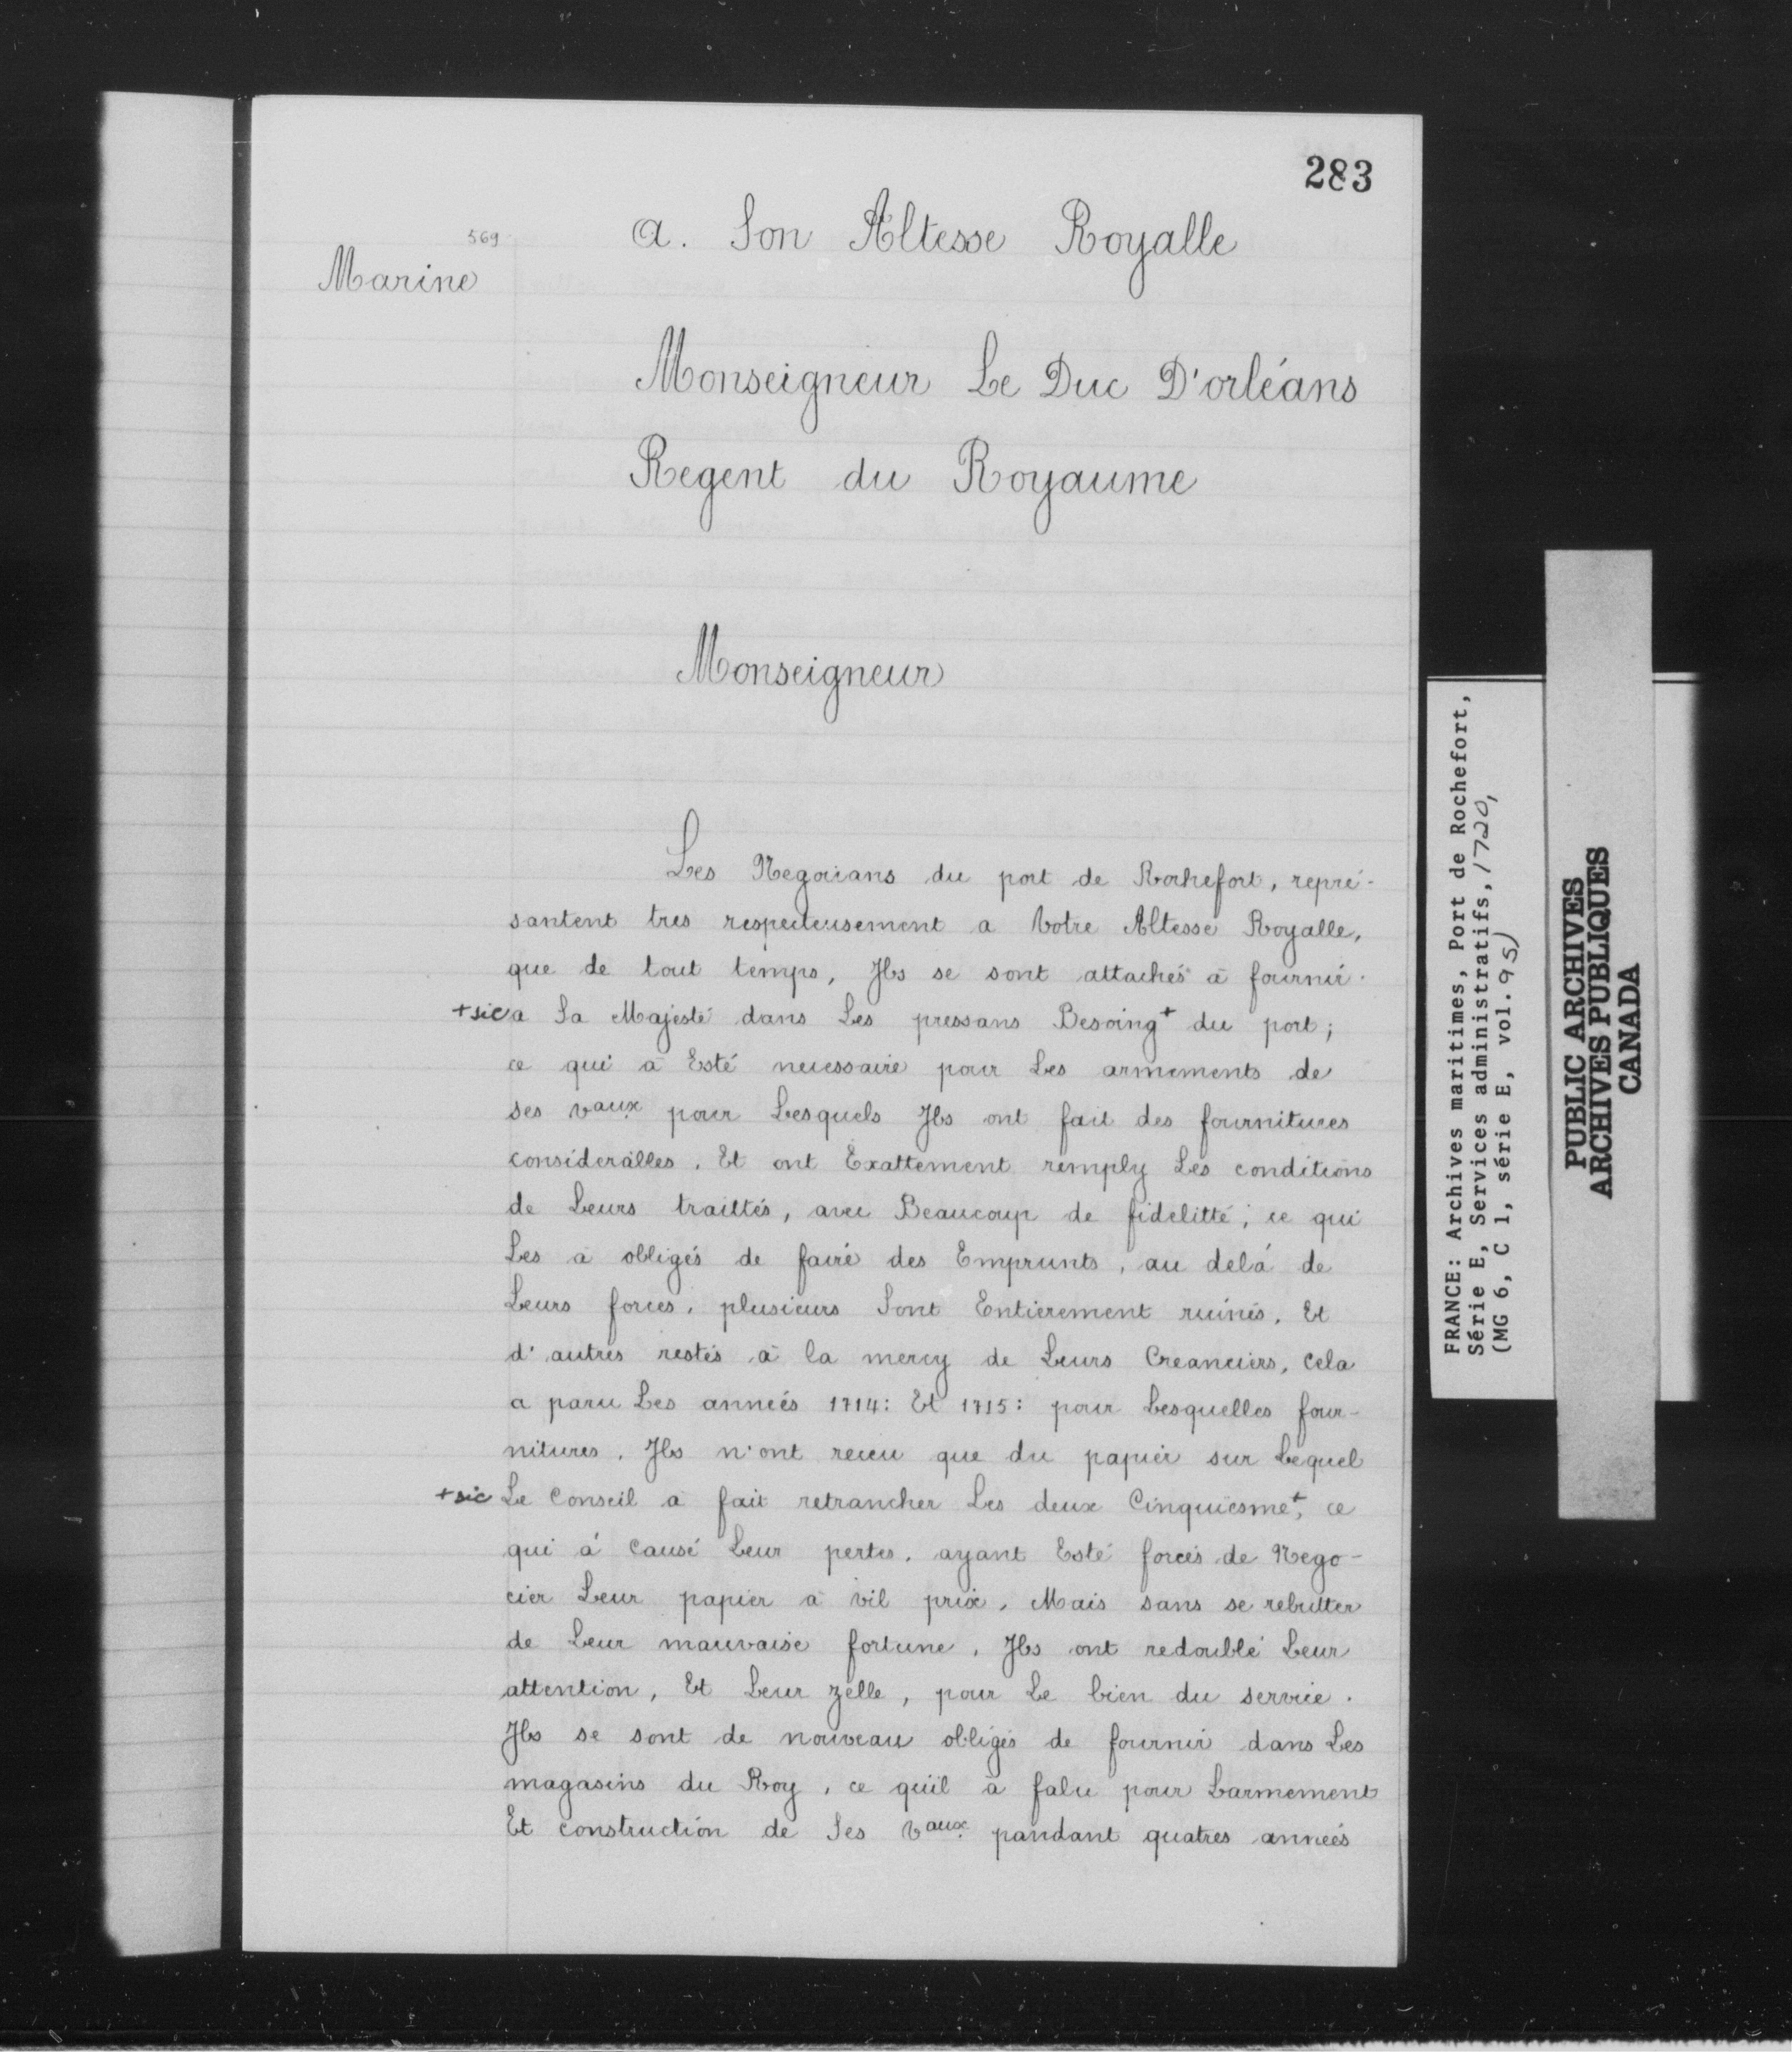 283
569
Marine
a. Son Altesse Royalle
Monseigneur Le Duc D'orléans
Regent du Royaume
Monseigneur
Les Negocians du port de Rochefort, repré-
santent tres respecteusement a Votre Altesse Royalle,
que de tout temps, Ils se sont attachés à fournir
+sic a Sa Majesté dans Les pressans Besoing+ du port;
ce qui à Esté necessaire pour Les armements de
ses vaux pour Lesquels Ils ont fait des fournitures
considerâlles, Et ont Exattement remply Les conditions
de Leurs traittés, avec Beaucoup de fidelitté; ce qui
Les à obligés de faire des Emprunts, au delà de
Leurs forces, plusieurs Sont Entierement ruinés, Et
d'autres restés à la mercy de Leurs Creanciers, Cela
a paru Les années 1714: Et 1715: pour Lesquelles four-
nitures, Ils n'ont receu que du papier sur Lequel
+sic Le Conseil à fait retrancher Les deux Cinquiesme+, ce
qui à Causé Leur pertes, ayant Esté forcés de Nego-
cier Leur papier à vil prix, Mais sans se rebutter
de Leur mauvaise fortune, Ils ont redoublé Leur
attention, Et Leur zelle, pour Le bien du service.
Ils se sont de nouveau obligés de fournir dans Les
magasins du Roy, ce qu'il à falu pour Larmement
Et construction de Ses Vaux pandant quatres années
FRANCE: Archives maritimes, Port de Rochefort,
Série E, Services administratifs, 1720,
(MG 6, C 1, série E, vol. 95)
PUBLIC ARCHIVES
ARCHIVES PUBLIQUES
CANADA